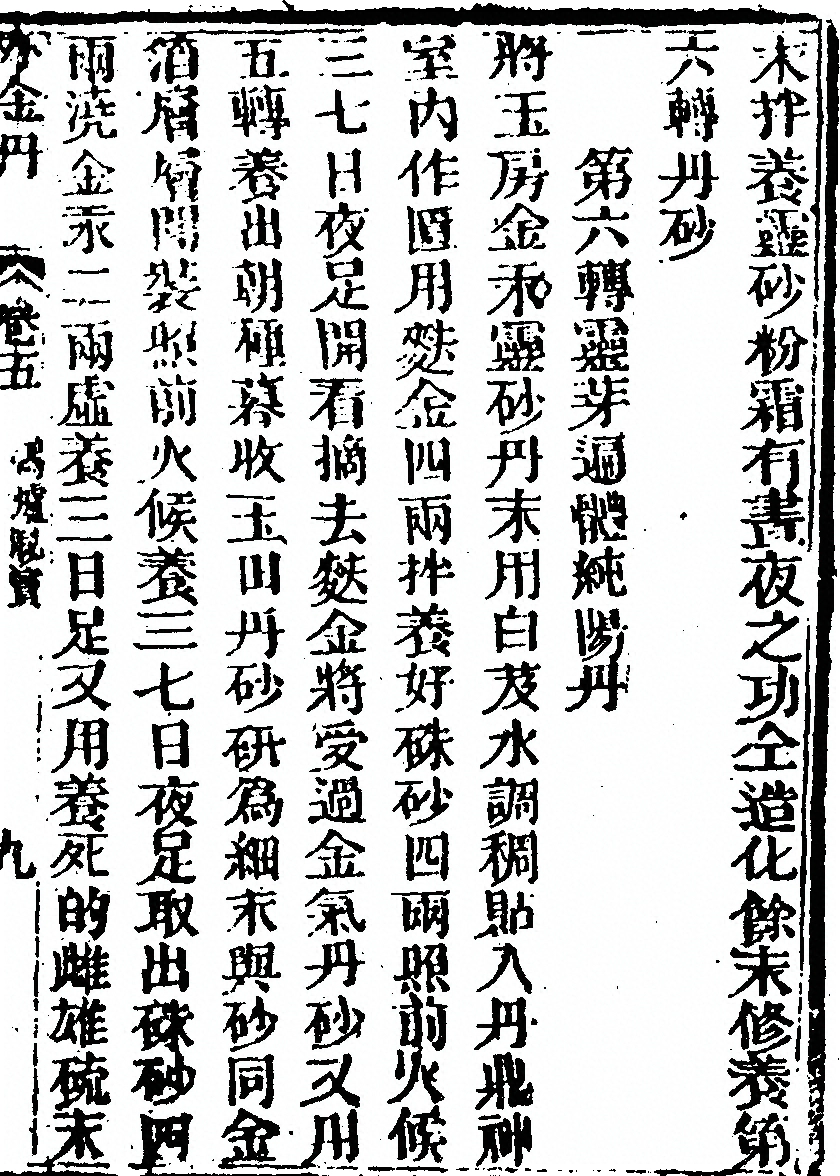 末拌養靈砂粉霜有晝夜之功仝造化餘末修養第
六轉丹砂
第六轉靈芽遍體純陽丹
將玉房金汞靈砂丹末用白芨水調稠貼入丹鼎神
室內作匱用麩金四兩拌養好硃砂四兩照前火候
三七日夜足開看摘去麩金將受過金氣丹砂又用
五轉養出朝種暮收玉田丹砂硏為細末與砂同金
箔層層間裝照前火候養三七日夜足取出硃砂四
兩澆金汞二兩虛養三日足又用養死的雌雄硫末
外金丹 卷五 九